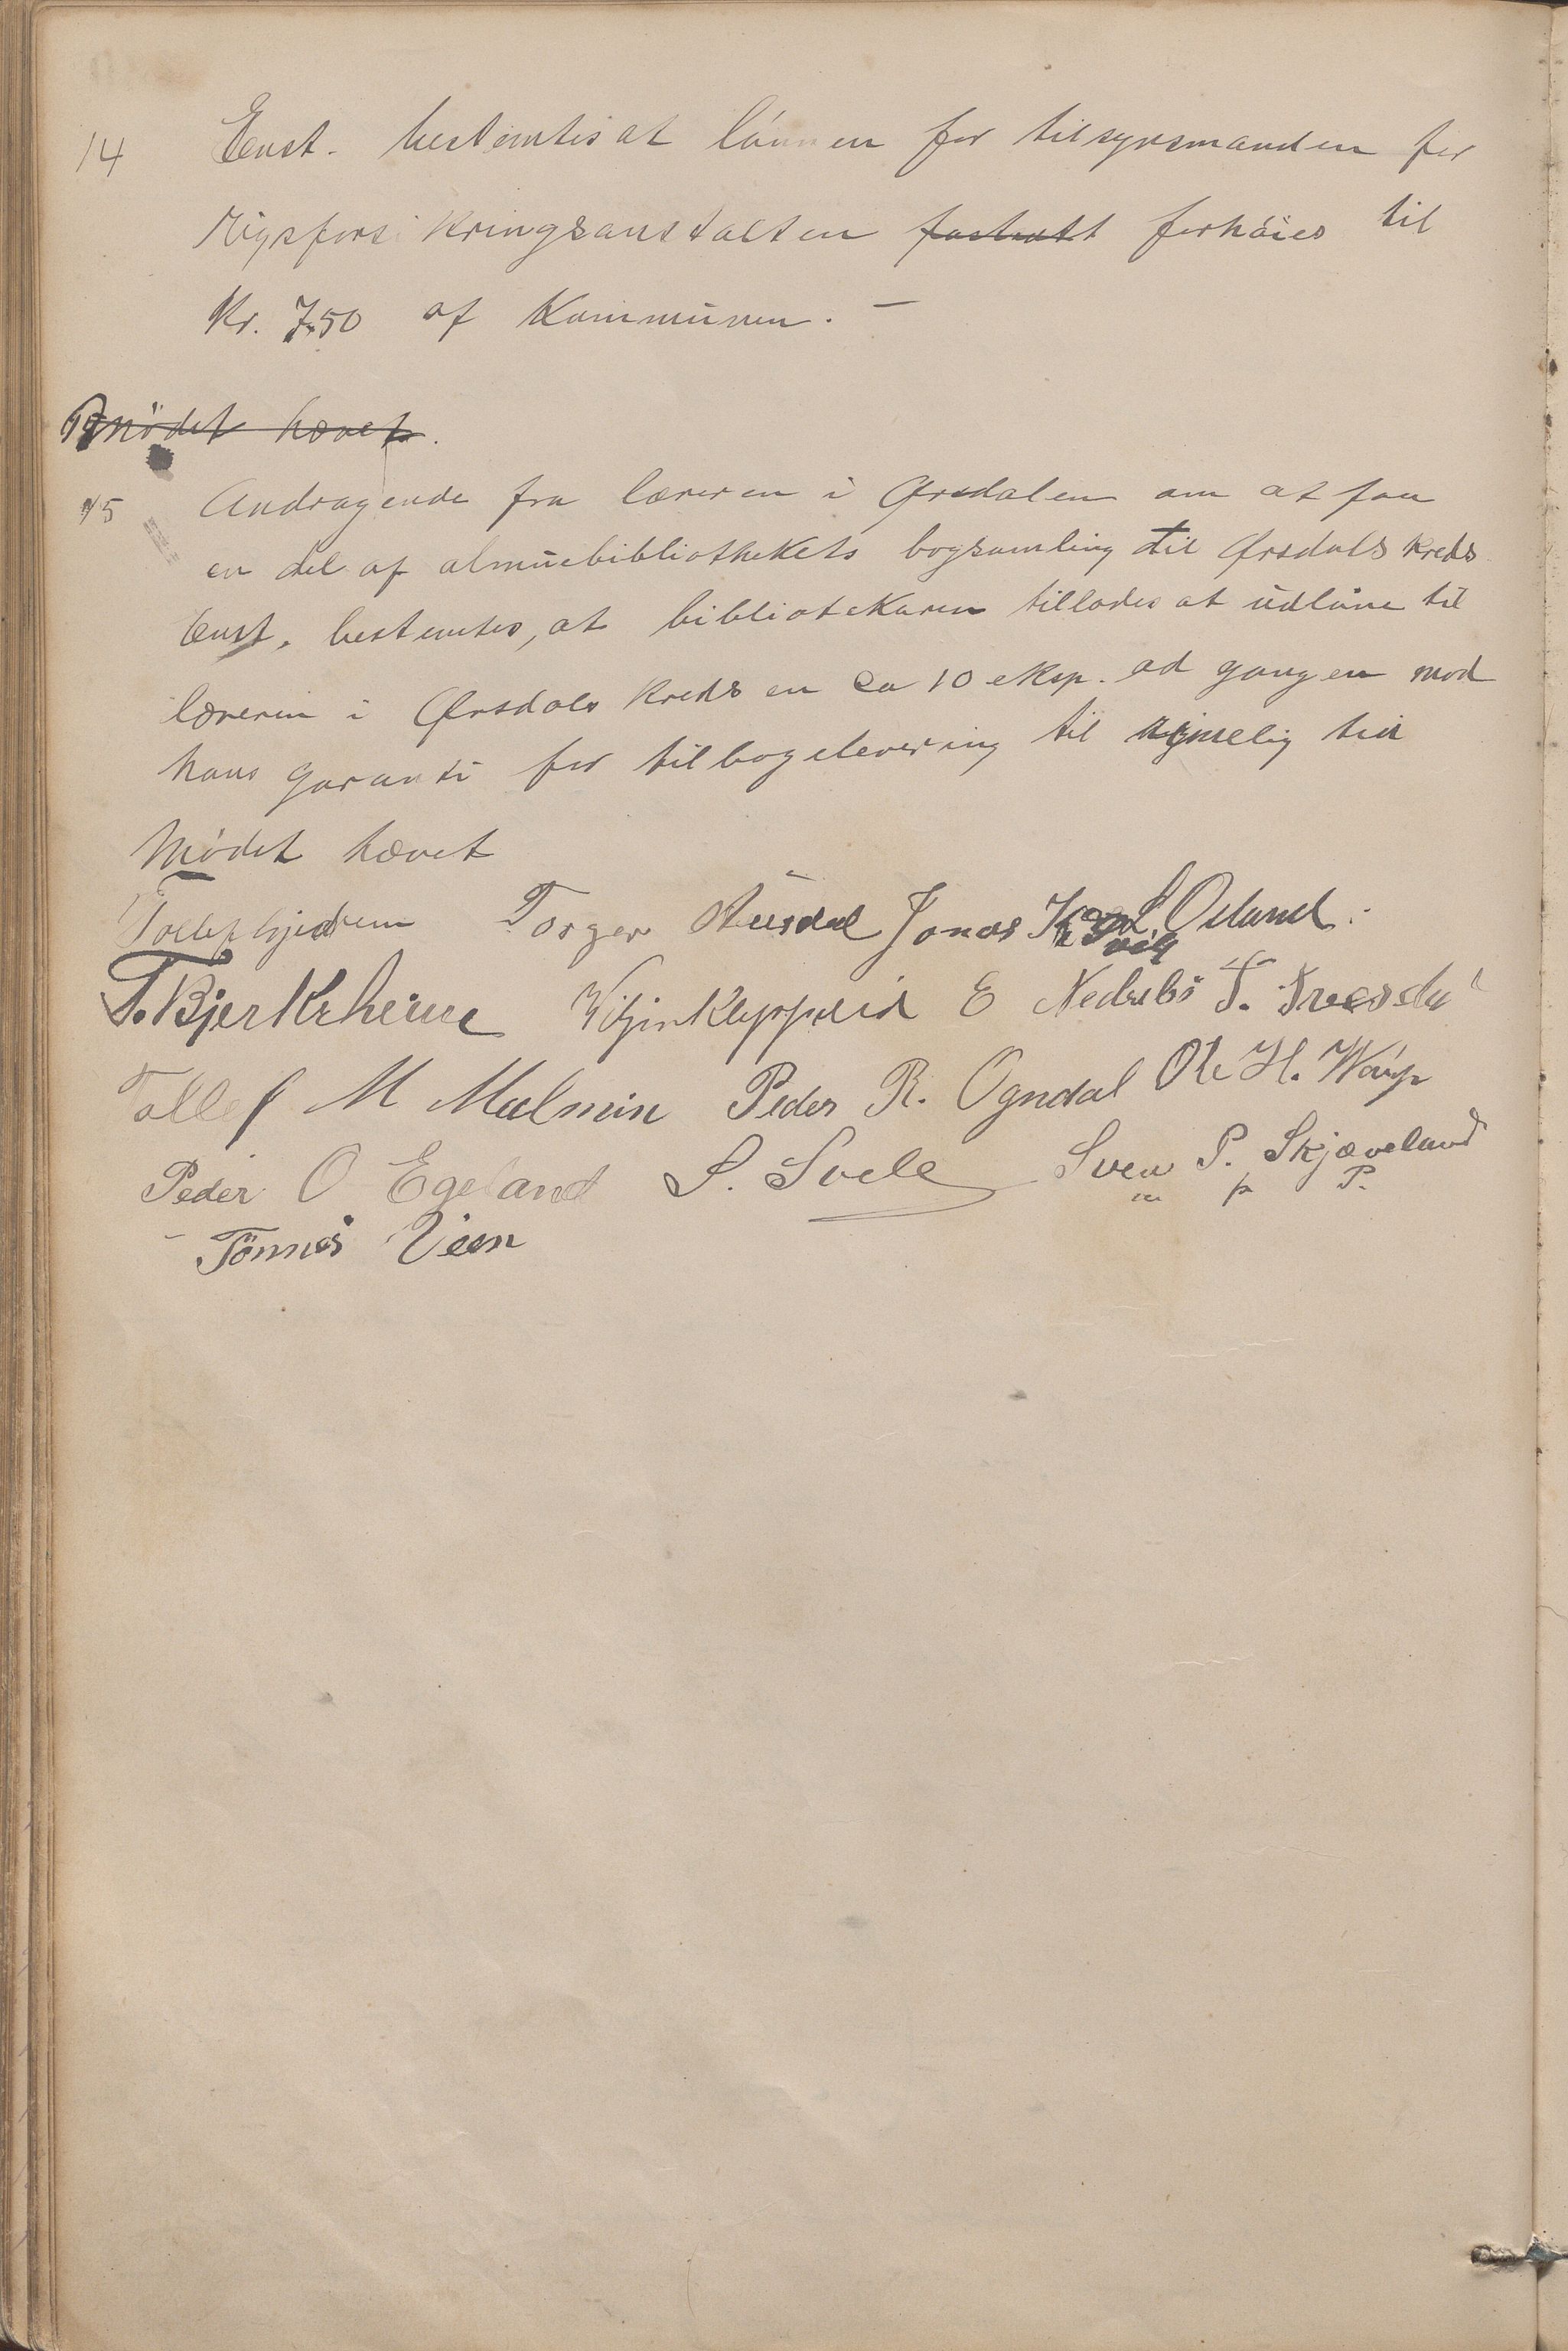 14 Enst. bestemtes at lønnen for tilsynsmanden for
Rigsforsikringsanstalten fastsatt forhöies til
Kr. 7.50 af Kommunen. —
Mödet hævet.
15 Andragende fra læreren i Ørsdalen om at faa
en del af almuebibliothekets bogsamling til Ørsdals Kreds
Enst. bestemtes, at bibliotekaren tillades at udlåne til
læreren i Ørsdals Kreds en ca 10 eksp. ad gangen mod
hans garanti for tilbagelevering til rimelig tid
Mødet hævet
Torger Ausdal Jonas L Osland.
T. Bjerkheim E Nedrebö T.
Tollef M Malmin Peder R. Ogndal Ole H.
Peder O Egeland S. Svele Sven P. Skjæveland
m p P.
Tönnes Veen